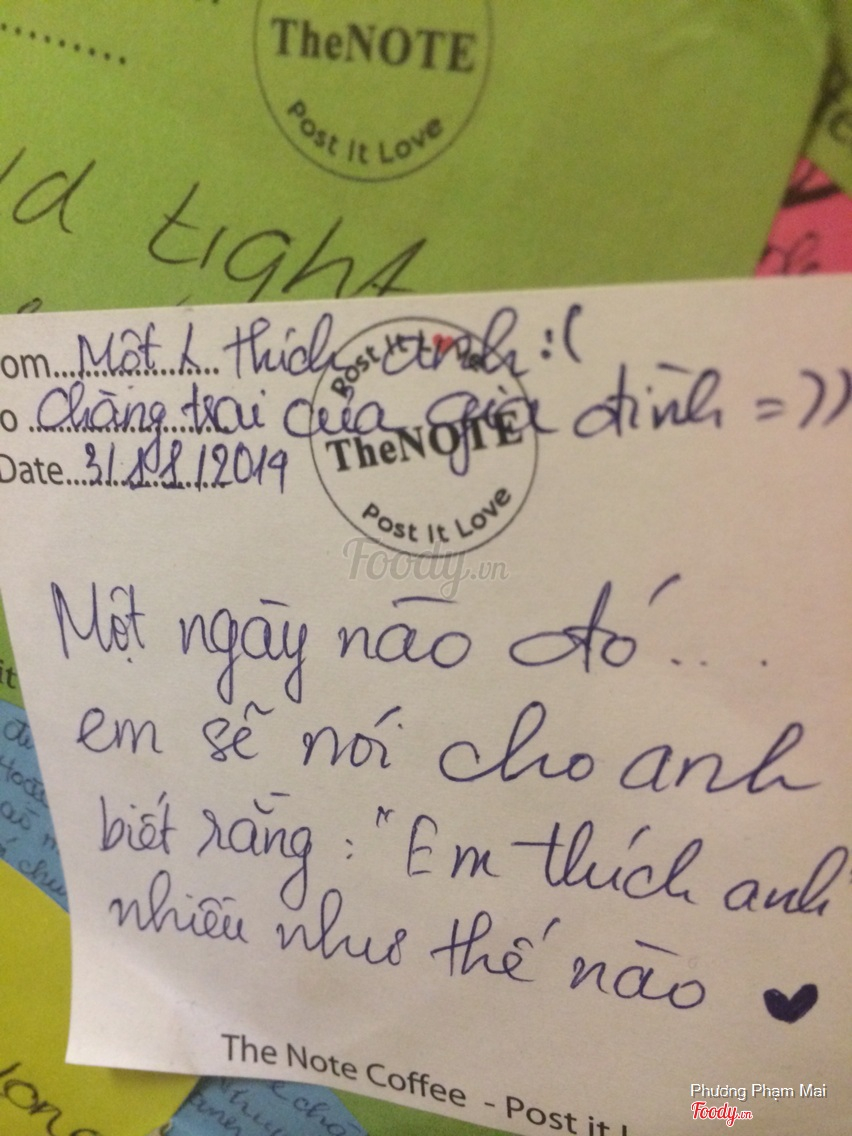 TheNOTE
Post It Love
tight
om... Một ... thích anh :(
o... Chàng trai của gia đình =))
Date... 31/11/2019
Post It Love
TheNOTE
Post It Love
Foody.vn
Một ngày nào đó....
em sẽ nói cho anh
biết rằng : "Em thích anh"
nhiều như thế nào ♥
The Note Coffee - Post it
Phương Phạm Mai
Foody.vn